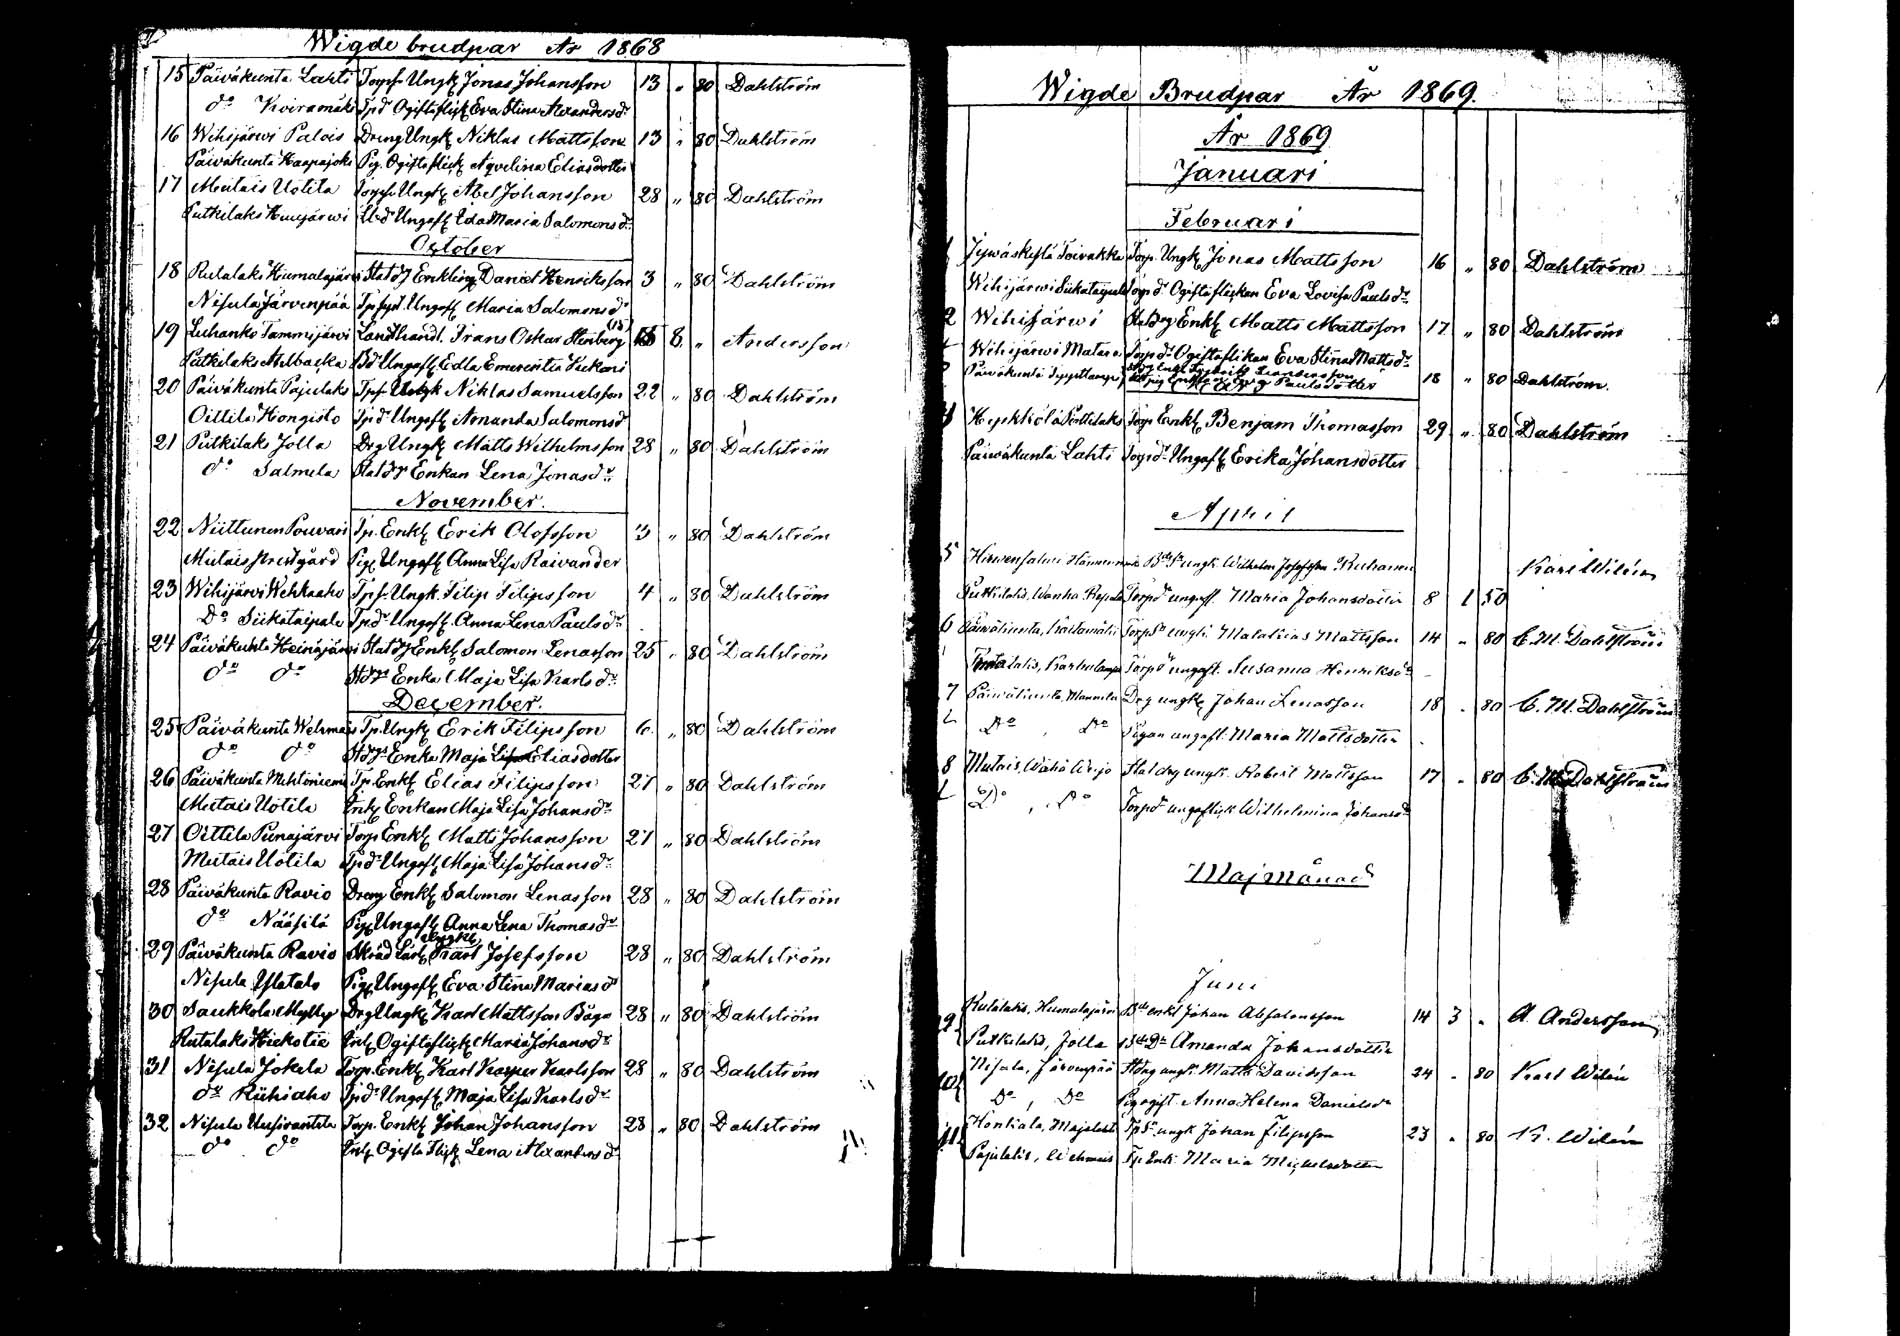 Wigde brudpar År 1868
15 Päiväkunta Lahti Torpf Ungk Jonas Johansson 13 " 80 Dahlström
do Koiramäki Tpd Ogiftaflick Eva Stina Alexandersdr
16 Wihijärwi Palois Dreng Ungk Niklas Mattsson 13 " 80 Dahlström
Päiväkunta Haapajoki Pig. Ogiftaflick Aqvelina Eliasdotter
17 Mutais Uotila Torpf Ungk Abel Johansson 28 " 80 Dahlström
Putkilaks Ungafk Ida Maria Salomonsdr
October
18 Rutalaks Humalajärwi Statdg Enkling Daniel Henriksson 3 " 80 Dahlström
Nisula Järvenpää Ungafk Maria Salomonsdr
19 Luhanko Tammijärwi Landthandl. Frans Oskar Stenberg (15) 8 " Andersson
Putkilaks Ahlbacka Bd Ungafk Edla Emerentia
20 Päiväkunta Pajulaks Tpf Ungk Niklas Samuelsson 22 " 80 Dahlström
Oittila Hongisto Tpd Ungafk Amanda Salomonsd
21 Putkilaks Jolla Drg Ungk Matts Wilhelmsson 28 " 80 Dahlström
do Salmela Statdg Enkan Lena Jonasdr
November.
22 Niittunen Pouvari Tp. Enkl Erik Olofsson 3 " 80 Dahlström
Mutais Pig Ungafk Anna Lisa Raivander
23 Wihijärwi Wehkaaho Tpf. Ungk Filip Filipsson 4 " 80 Dahlström
Do Siikataipale Tpd Ungafk Anna Lena Paulsdr
24 Päiväkunta Heinäjärwi Statdg Enkl Salomon Lenasson 25 " 80 Dahlström
do do Enka Maja Lisa Karlsdr
December.
25 Päiväkunta Wehmais Tp. Ungk Erik Filipsson 6 " 80 Dahlström
do do Enka Maja Eliasdotter
26 Päiväkunta Mehtoniemi Tp Enkl Elias Filipsson 27 " 80 Dahlström
Mutais Uotila Enkan Maja Lisa Johansdr
27 Oittila Punajärvi Torp Enkl Matts Johansson 27 " 80 Dahlström
Mutais Uotila Tpd Ungafk Maja Lisa Johansdr
28 Päiväkunta Ravio Dreng Enkl Salomon Lenasson 28 " 80 Dahlström
do Nääsilä Pig Ungafk Anna Lena Thomasdr
29 Päiväkunta Ravio Skräd Lärl Ungk Karl Josefsson 28 " 80 Dahlström
Nisula Ylatalo Pig Ungafk Eva Stina Mariasd
30 Saukkola Mylly Drg Ungk Karl Mattsson Båga 28 " 80 Dahlström
Rutalaks Hiekotie Inh Ogiftaflick Maria Johansdr
31 Nisula Jokela Torp Enkl Karl Kasper Karlsson 28 " 80 Dahlström
do Riihiaho Tpd Ungafk Maja Lisa Karlsdr
32 Nisula Uusirantala Torp. Enkl Johan Johansson 28 " 80 Dahlström
do do Inh Ogifta Flick Lena Alexandersd
Wigde Brudpar År 1869.
År 1869
Januari
Februari
1 Jywäskylä Toivakka Torp. Ungk Jonas Mattsson 16 " 80 Dahlström
Wihijärwi Siikataipale Torpd Ogiftaflickan Eva Lovisa Paulsdr
2 Wihijärwi Enkl Matts Mattsson 17 " 80 Dahlström
Wihijärwi Matara Torpdr Ogiftaflikan Eva Stina Mattsdr
Päiväkunta Paulsdotter 18 " 80 Dahlström.
4 Torp Enkl Benjam Thomasson 29 " 80 Dahlström
Päiväkunta Lahti Torpd Ungafk Erika Johansdotter
April
5 Hirwensalmi ungk Wilhelm Josefsson Ruhanen Karl Wilén
Putkilaks, Wanha Torpd ungafl. Maria Johansdotter 8 1 50
6 Päiwäkunta, Torpsn ungk. Matathias Mattsson 14 " 80 C. M. Dahlström
Rutalaks, Karhulampi Torpd ungafl. Susanna Henriksdr
7 Päiwäkunta, Mannila Drg ungk Johan Lenasson 18 " 80 C. M. Dahlström
Do , Do Pigan ungafl. Maria Mattsdotter
8 Mutais, Wähä Werjo Statdrg ungk. Robert Mattsson 17 " 80 C. M. Dahlström
Do , Do Torpdr ungaflick Wilhelmina Johansdr
Maj månad
Juni
9 Rutalaks, Humalajärwi Bde enkl Johan Absalonsson 14 3 " A. Andersson
Putkilaks, Jolla Amanda Johansdotter
10 Nisula, Järvenpää Stdrg ungk. Matts Davidsson 24 " 80 Karl Wilén
Do , Do Pig ogift. Anna Helena Danielsdr
11 Honkiala, Majalaht Tpsn ungk Johan Filipsson 23 " 80 K. Wilén
Pajulaks, Wehmais Tp Enk. Maria Michelsdotter